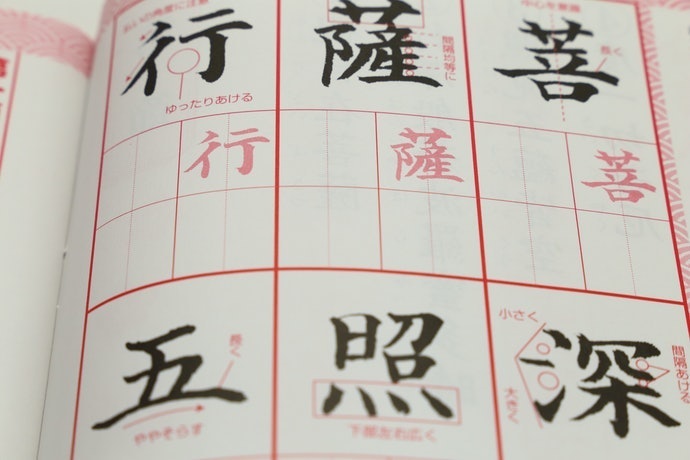 菩
中心を意識
長く
薩
間隔均等に
行
払いの角度に注意
ゆったりあける
菩
薩
行
深
小さく
大きく
間隔あける
照
下部左右広く
五
長く
ややそらす